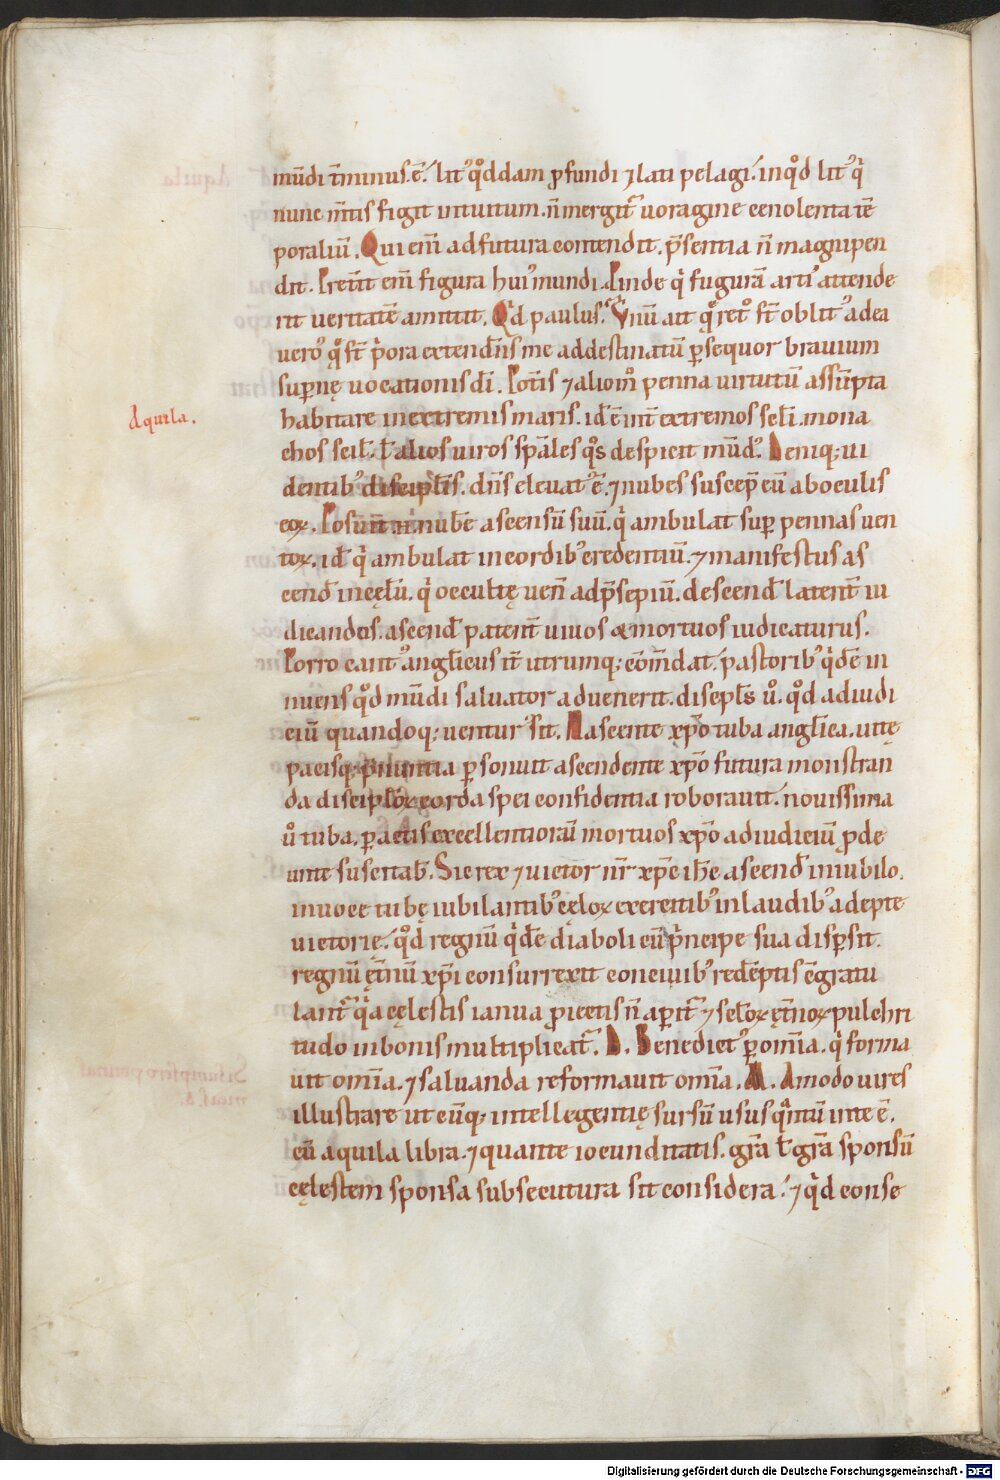 mūdi t̄minus .ē. lit᷒ qͦddam ꝓfundi ⁊ lati pelagi. inqͦd lit᷒ qͥ
nunc m̄tis figit intuitum. n̄ mergit᷑ uoragine cenolenta tē
poraliū. Qui eni᷒ ad futura contendit. p̄sentia n̄ magnipen
dit. Pret̄it eni᷒ figura hui᷒ mundi. Proinde qͥ figurā
rit ueritatē amittit. Qd paulus. Vnū ait q̄ retͦ st̄ oblit᷒ ad ea
uero q̄ st̄ p̄ora extendēs me ad destinatū ꝑsequor brauium
suꝑnę uocationis dī. Pot̄is ⁊ aliomͦ penna uirtutū assūpta
habitare in extremis maris. id ē int̄ extremos scł̄i. mona
Aquila.
chos scil. ł alios uiros sp̄ales qͦs despicit mūd᷒. Deniq; ui
dentib᷒ discipłis. dn̄s eleuat᷒ ē. ⁊ nubes suscep̄ eū ab oculis
eoꝝ. Posuit n̄ nubē ascensū suū. qͥ ambulat suꝑ pennas uen
toꝝ. id ē qͥ ambulat in cordib᷒ credentiū. ⁊ manifestus as
cend̄ in cęlū. qͥ occultę uen̄ ad p̄sepiū. descend̄ latent̄ iu
dicandus. ascend̄ patent̄ uiuos & mortuos iudicaturus.
Porro cant᷒ anglicus it̄ utrumq; cōm̄dat. pastorib᷒ qͥdē in
nuens qͦd mūdi saluator aduenerit. discipłs u̇. qͦd ad iudi
ciū quandoq; uentur᷒ sit. Nascente xp̄o tuba anglica. uitę
pacisq; p̄nuntia ꝑsonuit ascendente xp̄o futura monstran
da discipłoꝝ corda spei confidentia roborauit. nouissima
u̇ tuba. ꝑactis excellentiorū mortuos xp̄o ad iudiciū ꝓde
unte suscitab̄. Sic rex ⁊ uictor nr̄ xp̄c ih̄c ascend̄ in iubilo.
in uoce tubę iubilantib᷒ cęloꝝ exercitib᷒ in laudib᷒ adepte
uictorię. qͦd regnū qͥdē diaboli cū p̄ncipe sua disꝑsit.
regnū ęt̄nū xp̄i consurrexit conciuib᷒ redēptis ēgratu
lant᷑ qͥa cęlestis ianua ꝓiectis n̄ aꝑit᷑ ⁊ scłoꝝ ęt̄noꝝ pulchri
tudo in bonis multiplicat᷑. D. Benedict᷒ ꝑ om̄ia. qͥ forma
uit om̄ia. ⁊ saluanda reformauit om̄ia. M. Amodo uires
illustrare ut cūq; intellegentię sursū usus qͣntū inte ē.
cū aquila libra. ⁊ quante iocunditatis. gr̄a ł gr̄a sponsū
cęlestem sponsa subsecutura sit considera. ⁊ qͥd conse